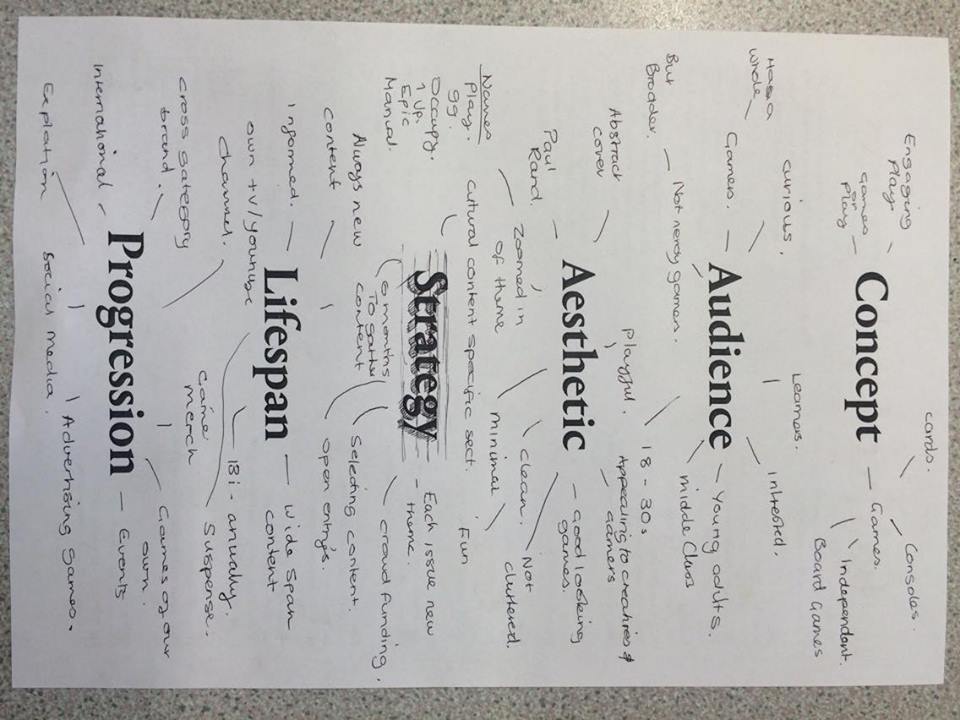 cards.
Consoles.
Engaging
Play.
games
on
play
Concept
Games.
Independent.
Board Games
Has a
whole
curious,
Learners.
Intrested.
Gamers.
Audience
Young adults.
middle Class
But
Broader.
Not nerdy gamer.
18 - 30s
Abstract
cover
playful.
Appealing to creatives &
gamers
Aesthetic
good looking
games.
Paul
Rand.
Zoomed in
of theme
minimal
clean.
Not
cluttered.
Fun
Names
Play.
99.
Occupy.
1 Up.
Epic
Manual.
cultural content specific sect.
Strategy
Each issue new
theme.
6 months
To gather
content
Selecting content.
crowd funding.
open entry's.
Always new
content
Informed.
Lifespan
Wide span
content
own tv/youtube
Channel.
Bi-anually.
Suspense.
cross satergory
brand.
Game
merch
International
Progression
Events
Games of our
own.
Explation
Social media.
Advertising Games.